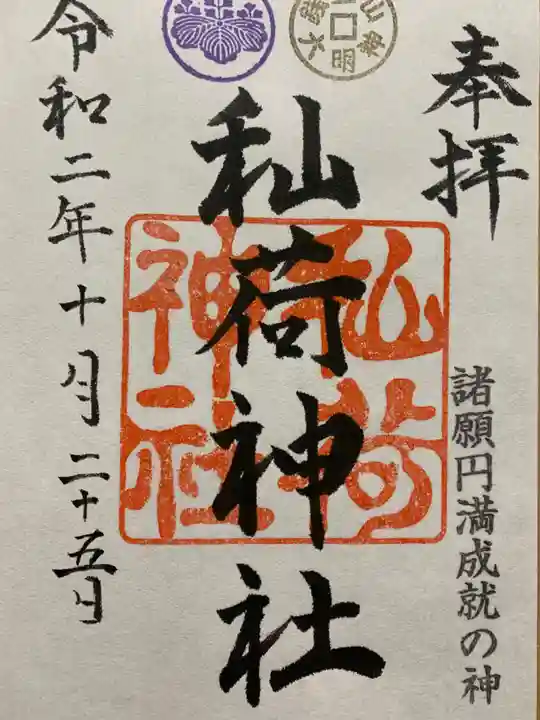 奉拝
諸願円満成就の神
秈荷神社
秈荷
神社
令和二年十月二十五日